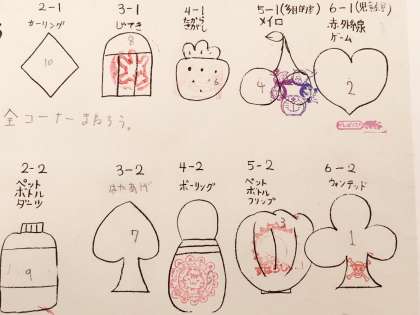 2-1
カーリング
10
3-1
しゃてき
8
4-1
たから
さがし
6
5-1(多目的室)
メイロ
4
6-1(児童室)
赤外線
ゲーム
2
全コーナーまわろう。
2-2
ペット
ボトル
ダーツ
9
3-2
はたあげ
7
4-2
ボーリング
5-2
ペット
ボトル
フリップ
3
6-2
ウォンテッド
1